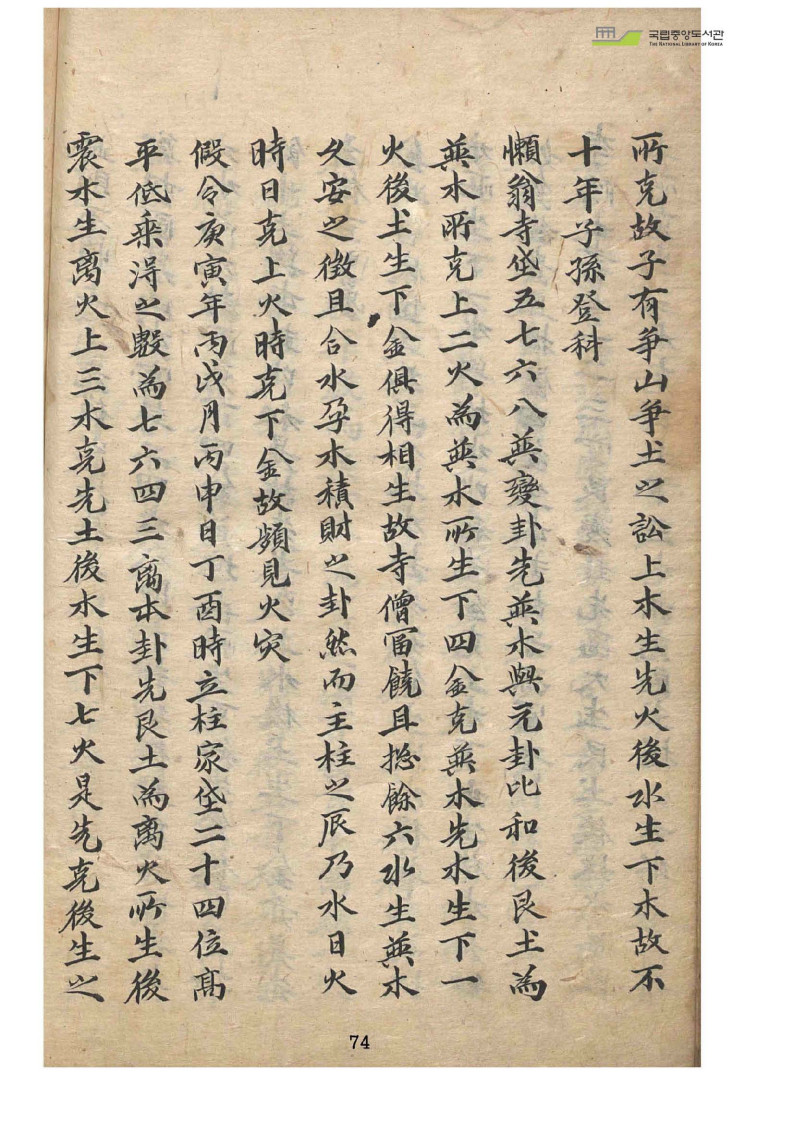 국립중앙도서관
THE NATIONAL LIBRARY OF KOREA
所克故子有爭山爭土之訟上木生先火後水生下木故不
十年子孫登科
懶翁寺垈五七六八巽變卦先巽木與元卦比和後艮土為
巽木所克上二火為巽木所生下四金克巽木先水生下一
火後土生下金俱得相生故寺僧富饒且揔餘六水生巽木
久安之徵且合水孕木積財之卦然而主柱之辰乃水日火
時日克上火時克下金故頻見火灾
假令庚寅年丙戌月丙申日丁酉時立柱家垈二十四位高
平低乗淂之數為七六四三离本卦先艮土為离火所生後
震木生离火上三木克先土後木生下七火是先克後生之
74